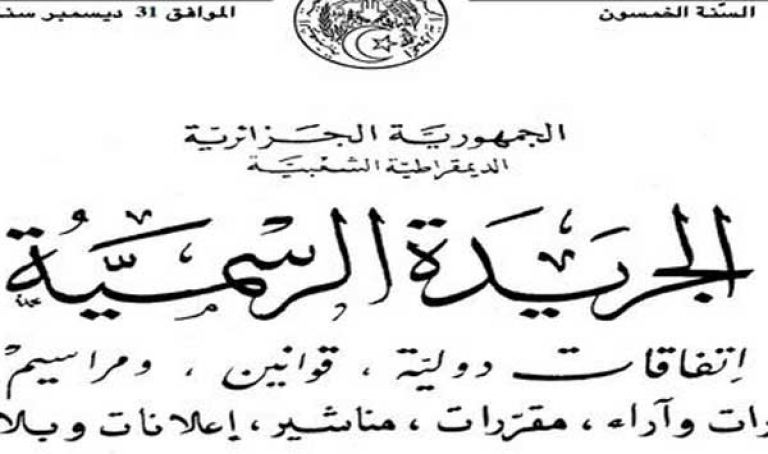 السّنة الخمسون
الموافق 31 ديسمبر سنة
الجمهوريّة الجزائريّة
الديمقراطيّة الشعبيّة
الجريدة الرسميّة
إتفاقات دوليّة ، قوانين ، ومراسيم
رات وآراء ، مقرّرات ، مناشير ، إعلانات وبلا